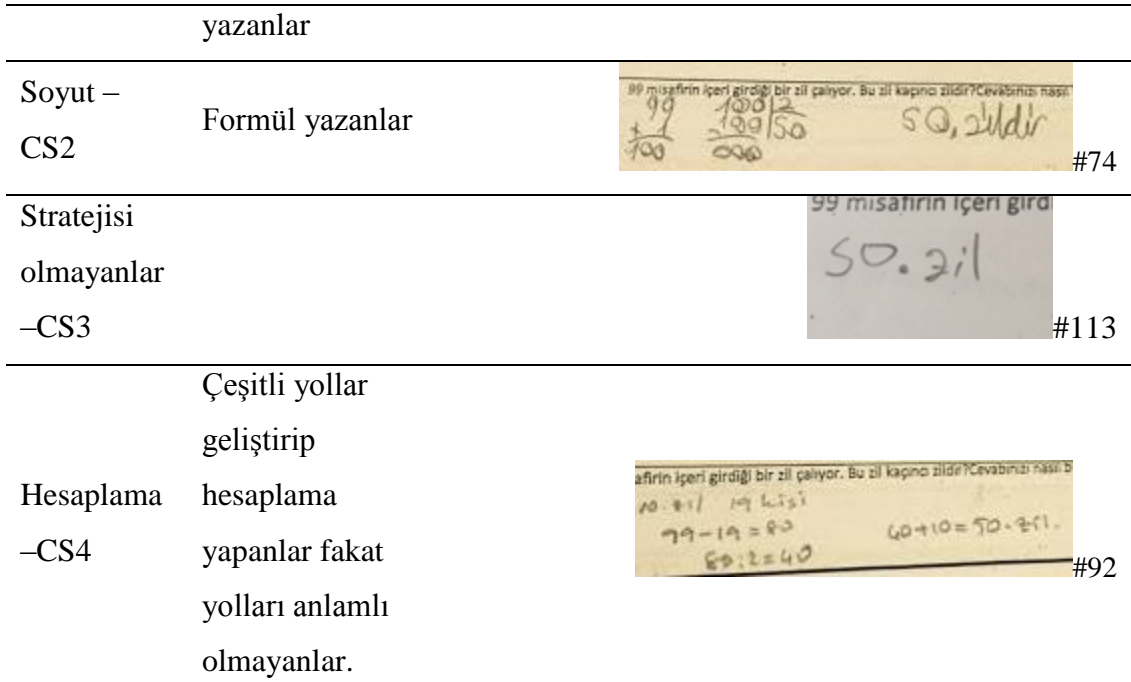 yazanlar
Soyut –
CS2
Formül yazanlar
99 misafirin içeri girdiği bir zil çalıyor. Bu zil kaçıncı zildir?Cevabınızı nasıl
99 100 2
+ 1 - 100 50 50, zildir
100 000
#74
Stratejisi
olmayanlar
–CS3
99 misafirin içeri gird
50. zil
#113
Hesaplama
–CS4
Çeşitli yollar
geliştirip
hesaplama
yapanlar fakat
yolları anlamlı
olmayanlar.
afirin içeri girdiği bir zil çalıyor. Bu zil kaçıncı zildir?Cevabınızı nasıl b
10. zil 19 kişi
99-19=80 40+10=50. zil.
80:2=40
#92